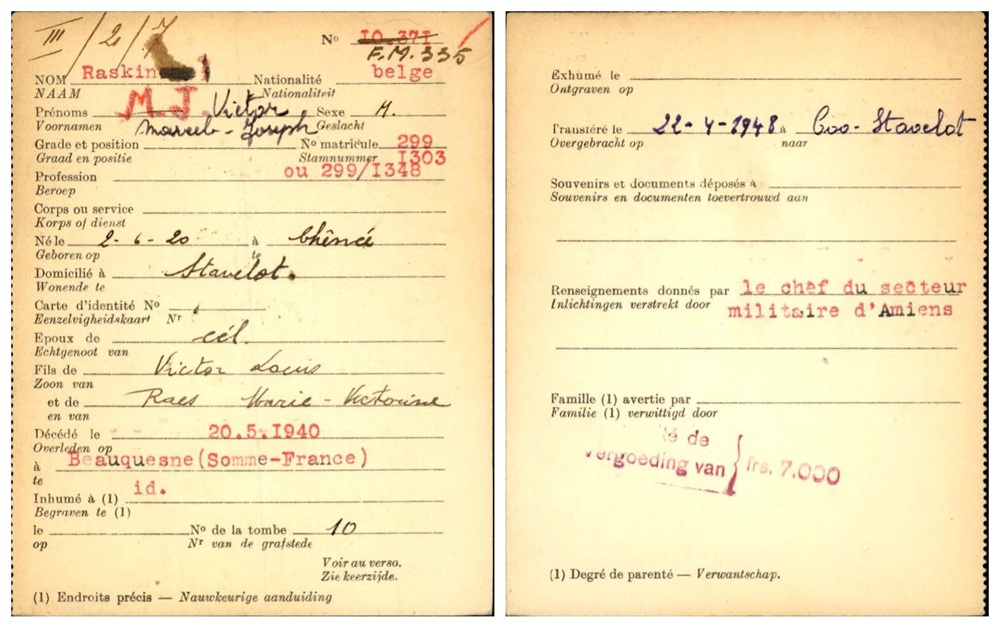 III / 2 / 7
Nº 10.371
F.M. 335
NOM Raskin Nationalité belge
NAAM Nationaliteit
Prénoms M J. Victor Sexe M.
Voornamen Marcel-Joseph Geslacht
Grade et position Nº matricule 299
Graad en positie Stamnummer 1303
Profession ou 299/1348
Beroep
Corps ou service
Korps of dienst
Né le 2-6-20 à Chênée
Geboren op te
Domicilié à Stavelot.
Wonende te
Carte d'identité Nº
Eenzelvigheidskaart Nr
Epoux de cél.
Echtgenoot van
Fils de Victor Louis
Zoon van
et de Raes Marie-Victorine
en van
Décédé le 20.5.1940
Overleden op
à Beauquesne(Somme-France)
te
Inhumé à (1) id.
Begraven te (1)
le Nº de la tombe 10
op Nr van de grafstede
Voir au verso.
Zie keerzijde.
(1) Endroits précis — Nauwkeurige aanduiding
Exhumé le
Ontgraven op
Transféré le 22-4-1948 à Coo-Stavelot
Overgebracht op naar
Souvenirs et documents déposés à
Souvenirs en documenten toevertrouwd aan
Renseignements donnés par le chef du secteur
Inlichtingen verstrekt door militaire d'Amiens
Famille (1) avertie par
Familie (1) verwittigd door
té de
vergoeding van } frs. 7.000
(1) Degré de parenté — Verwantschap.